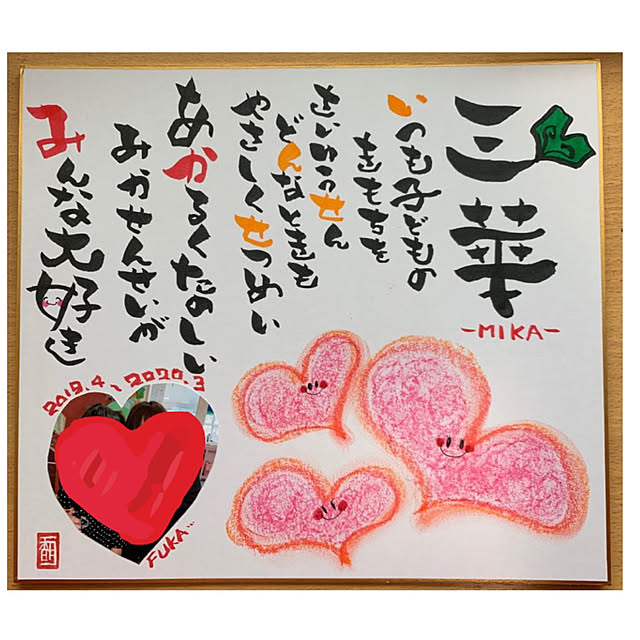 三華
-MIKA-
いつも子どもの
きもちを
さいゆうせん
どんなときも
やさしくせつめい
あかるくたのしい
みかせんせいが
みんな大好き
2019.4~2020.3
FUKA...